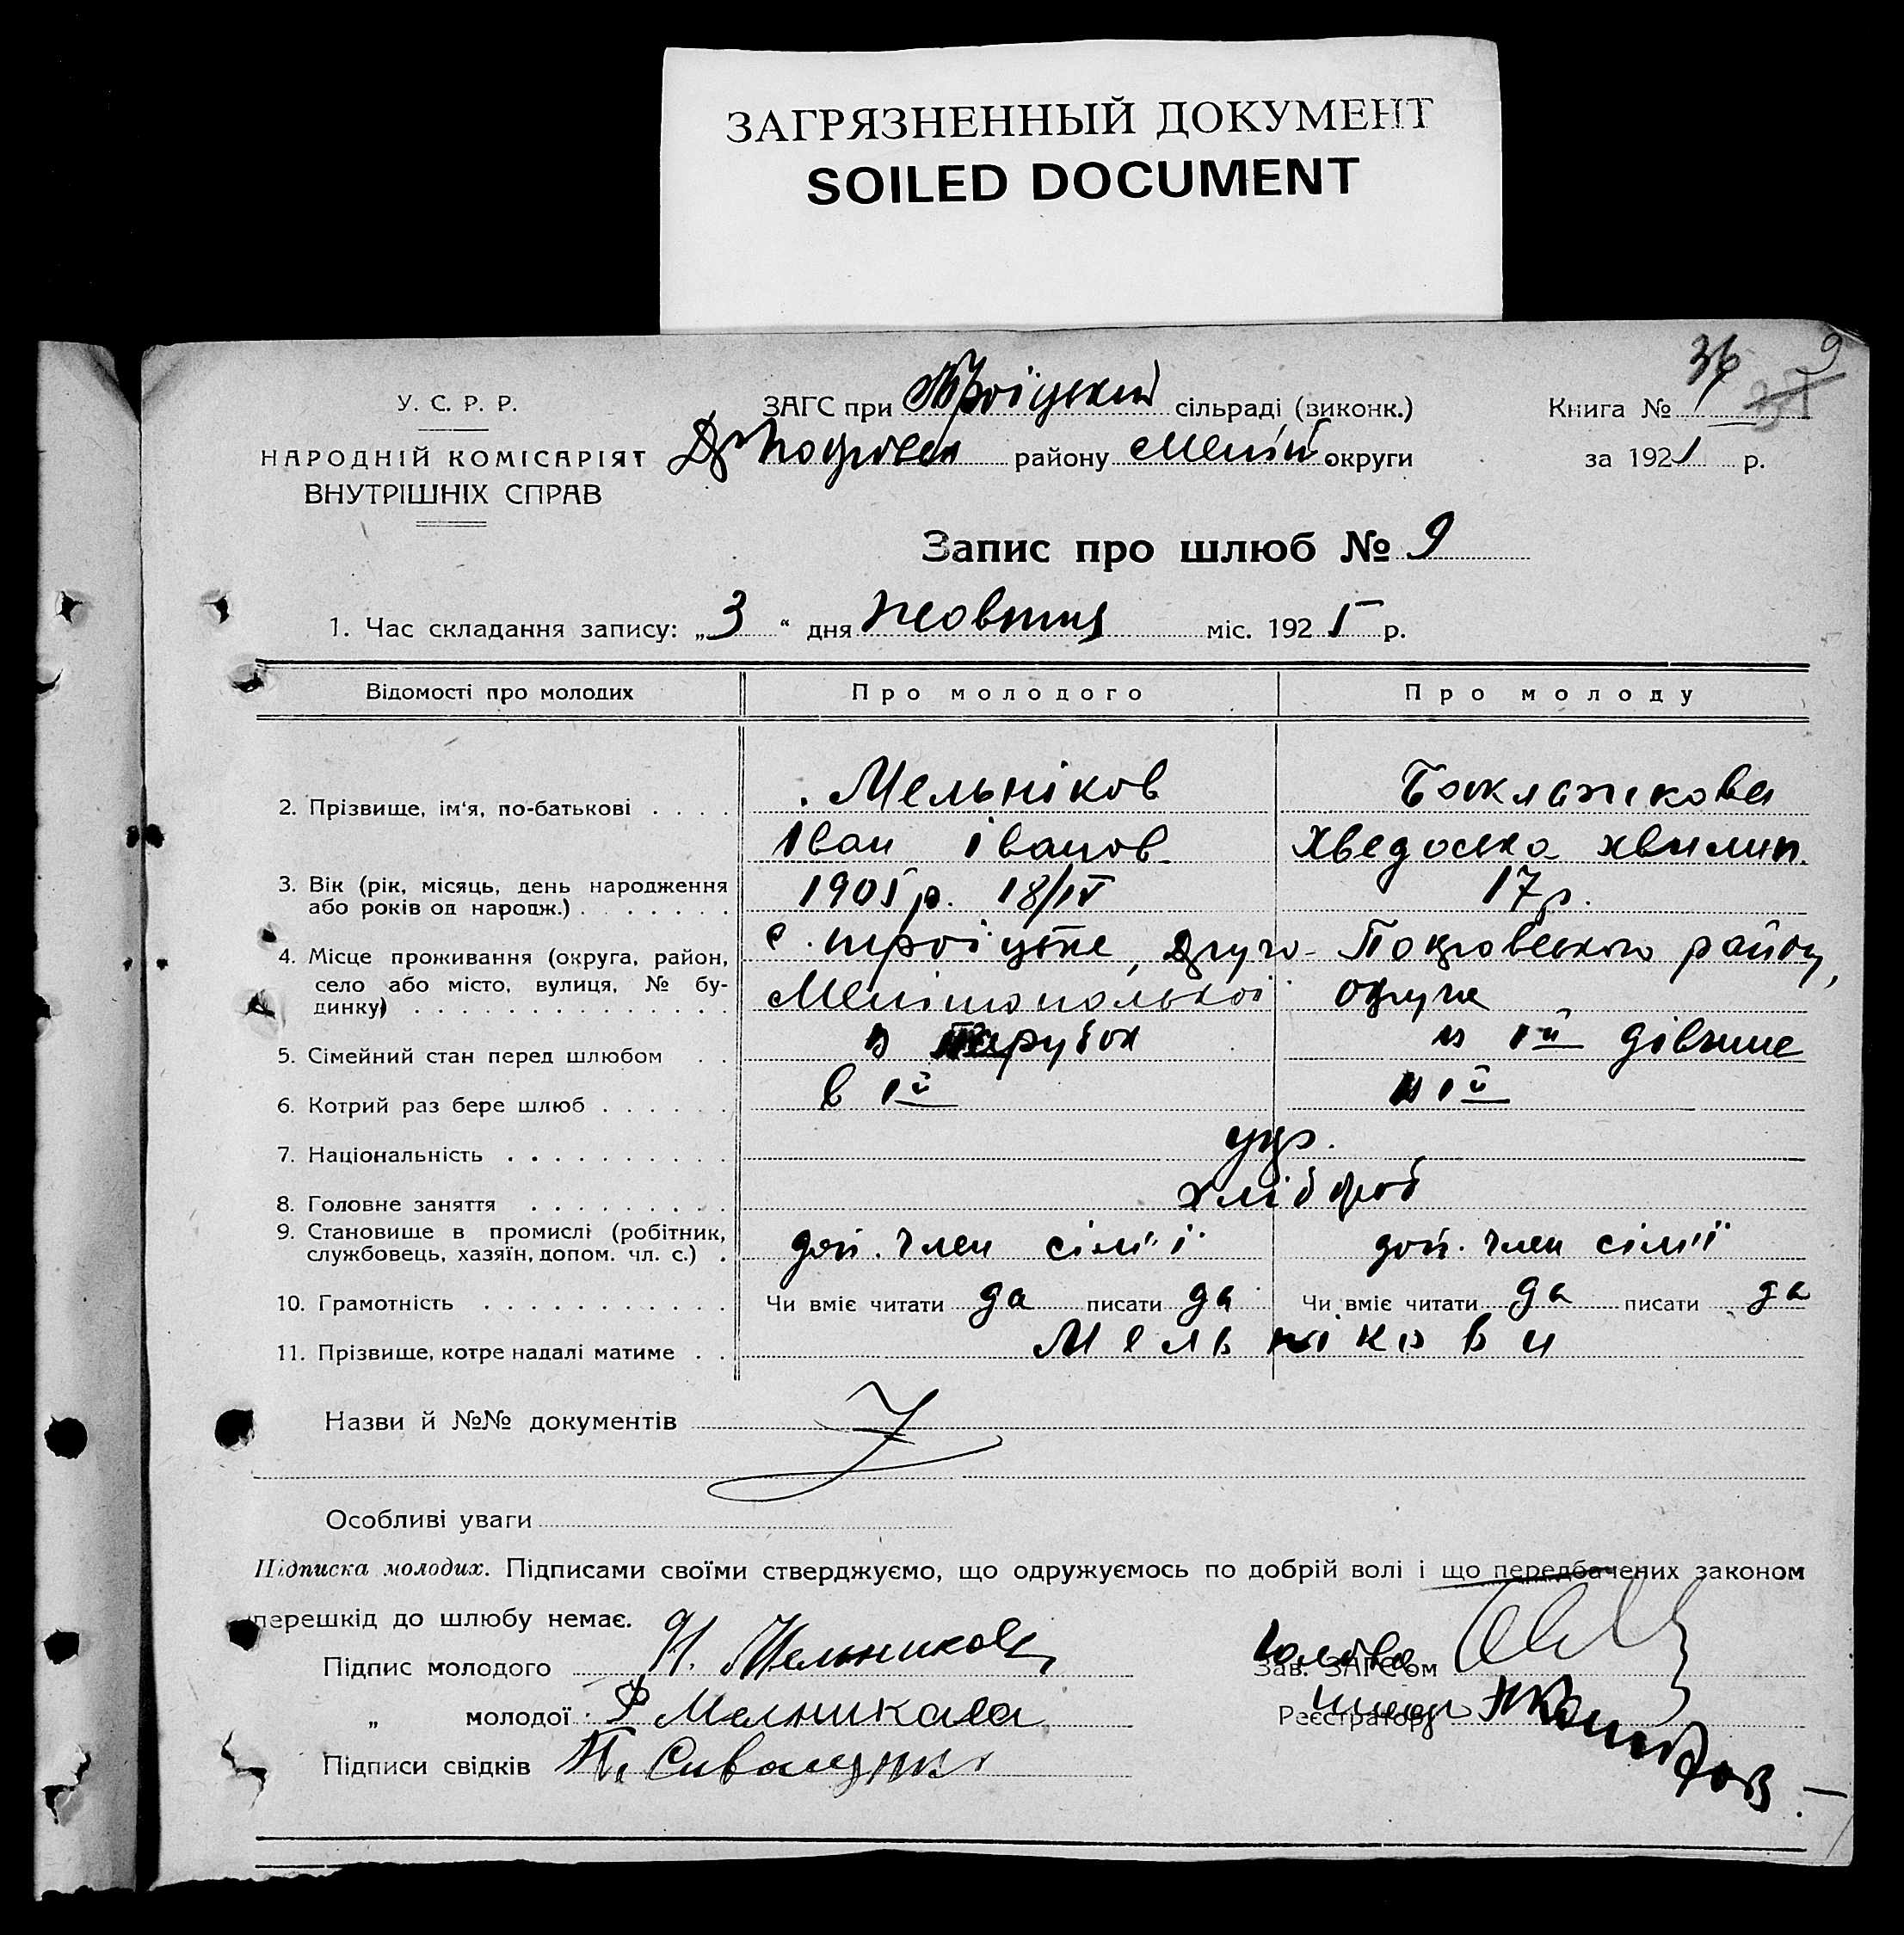 ЗАГРЯЗНЕННЫЙ ДОКУМЕНТ
SOILED DOCUMENT
36 9
У. С. Р. Р.
НАРОДНІЙ КОМІСАРІЯТ
ВНУТРІШНІХ СПРАВ
ЗАГС при Троїцькій сільраді (виконк.)
Др Покровськ району Меліт округи
Книга №
за 192 р.
Запис про шлюб № 9
1. Час складання запису: „3“ дня жовтня міс. 1925 р.
Відомості про молодих Про молодого Про молоду
2. Прізвище, ім'я, по-батькові . . . . Мельніков Баклажкова
Іван Іванов Хведоска хвилип.
3. Вік (рік, місяць, день народження або років од народж.) . . . . . . . 1905 р. 18/IV 17 р.
4. Місце проживання (округа, район, село або місто, вулиця, № будинку) . . . . . . . . . . . . . . с. троїцьке, Друго-Покровського району,
Мелітопольскої округи
5. Сімейний стан перед шлюбом . . парубок 1й дівчина
6. Котрий раз бере шлюб . . . . . . в 1й 1й
7. Національність . . . . . . . . . . укр.
8. Головне заняття . . . . . . . . . хлібороб
9. Становище в промислі (робітник, службовець, хазяїн, допом. чл. с.) . доп. член сім'ї доп. член сім'ї
10. Грамотність . . . . . . . . . . . Чи вміє читати да писати да Чи вміє читати да писати да
11. Прізвище, котре надалі матиме . . Мельнікови
Назви й №№ документів
Особливі уваги
Підписка молодих. Підписами своїми стверджуємо, що одружуємось по добрій волі і що передбачених законом
перешкід до шлюбу немає.
Підпис молодого И. Мельников Голова Зав. ЗАГСом
„ молодої Ф Мелникава Реєстратор
Підписи свідків